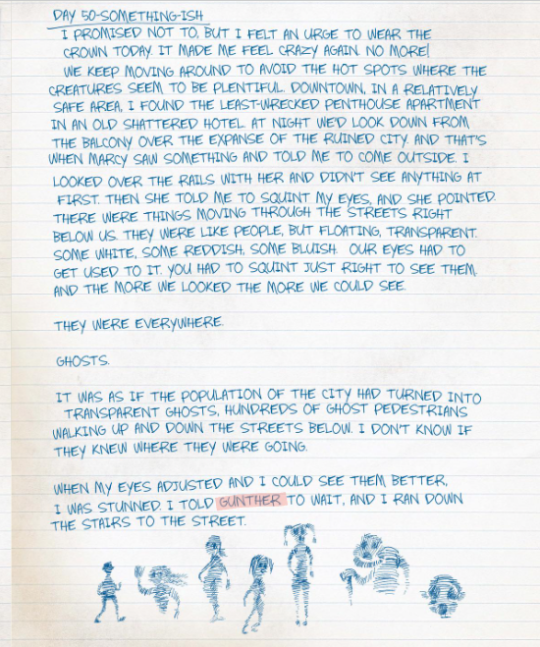 DAY 50-SOMETHING-ISH
I PROMISED NOT TO, BUT I FELT AN URGE TO WEAR THE
CROWN TODAY. IT MADE ME FEEL CRAZY AGAIN. NO MORE!
WE KEEP MOVING AROUND TO AVOID THE HOT SPOTS WHERE THE
CREATURES SEEM TO BE PLENTIFUL DOWNTOWN, IN A RELATIVELY
SAFE AREA, I FOUND THE LEAST-WRECKED PENTHOUSE APARTMENT
IN AN OLD SHATTERED HOTEL. AT NIGHT WE'D LOOK DOWN FROM
THE BALCONY OVER THE EXPANSE OF THE RUINED CITY. AND THAT'S
WHEN MARCY SAW SOMETHING AND TOLD ME TO COME OUTSIDE. I
LOOKED OVER THE RAILS WITH HER AND DIDN'T SEE ANYTHING AT
FIRST. THEN SHE TOLD ME TO SQUINT MY EYES, AND SHE POINTED.
THERE WERE THINGS MOVING THROUGH THE STREETS RIGHT
BELOW US. THEY WERE LIKE PEOPLE, BUT FLOATING, TRANSPARENT.
SOME WHITE, SOME REDDISH, SOME BLUISH. OUR EYES HAD TO
GET USED TO IT. YOU HAD TO SQUINT JUST RIGHT TO SEE THEM,
AND THE MORE WE LOOKED THE MORE WE COULD SEE.
THEY WERE EVERYWHERE.
GHOSTS.
IT WAS AS IF THE POPULATION OF THE CITY HAD TURNED INTO
TRANSPARENT GHOSTS, HUNDREDS OF GHOST PEDESTRIANS
WALKING UP AND DOWN THE STREETS BELOW. I DON'T KNOW IF
THEY KNEW WHERE THEY WERE GOING.
WHEN MY EYES ADJUSTED AND I COULD SEE THEM BETTER,
I WAS STUNNED. I TOLD GUNTHER TO WAIT, AND I RAN DOWN
THE STAIRS TO THE STREET.